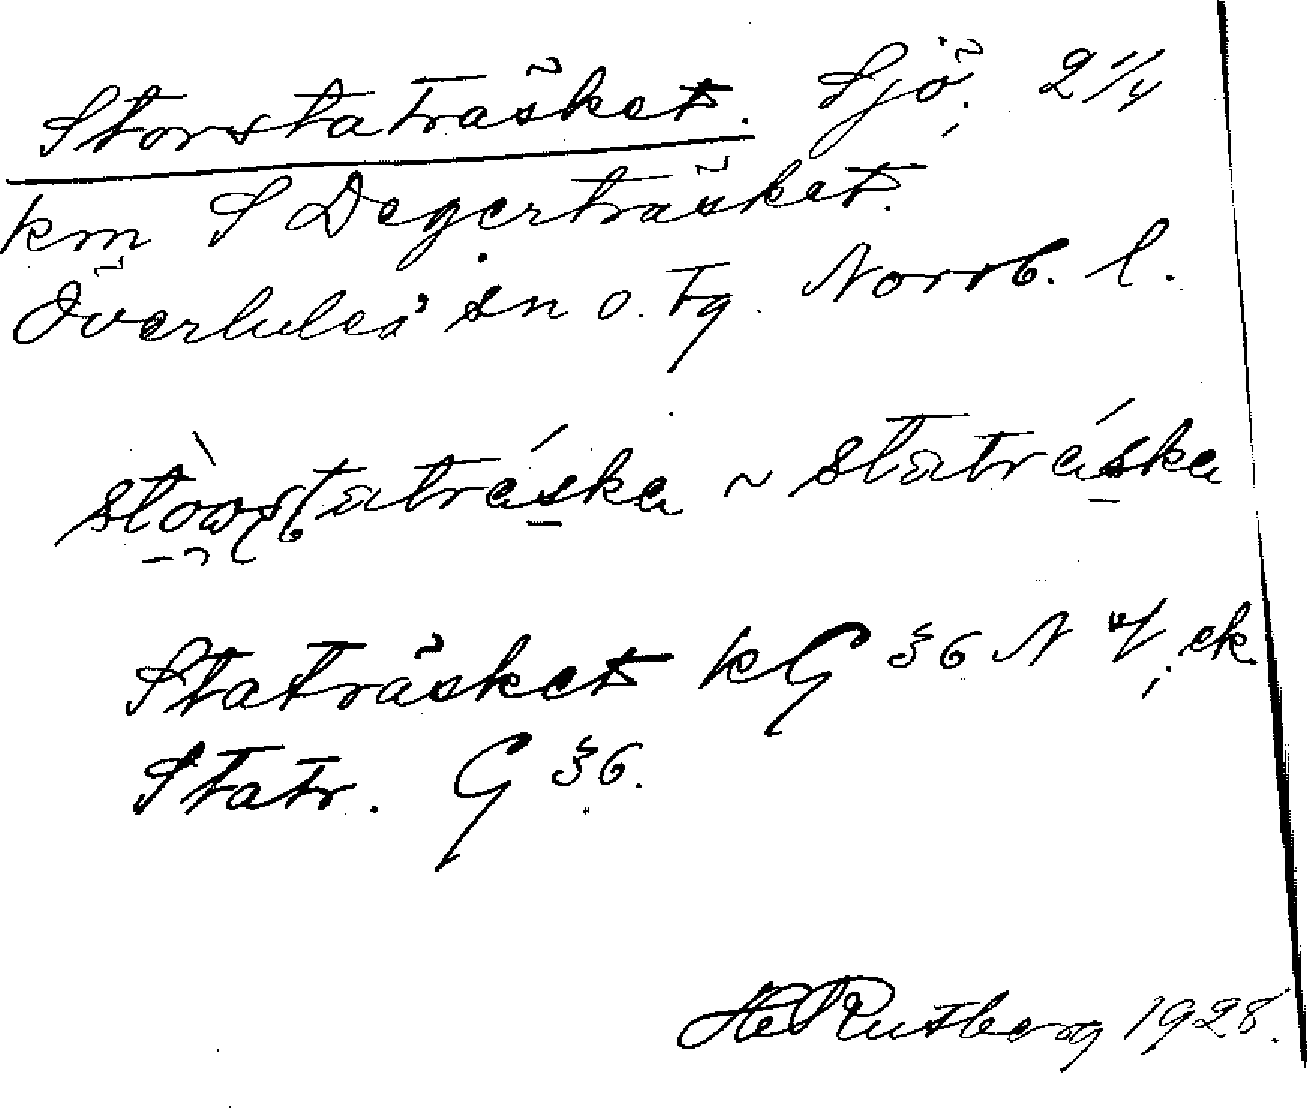 Storstaträsket. Sjö; 2 1/4
km S Degerträsket.
Överluleå sn o. tg. Norrb. l.
~ statráska
Staträsket kG §6 N ek.
Statr. G §6.
HRutberg 1928.